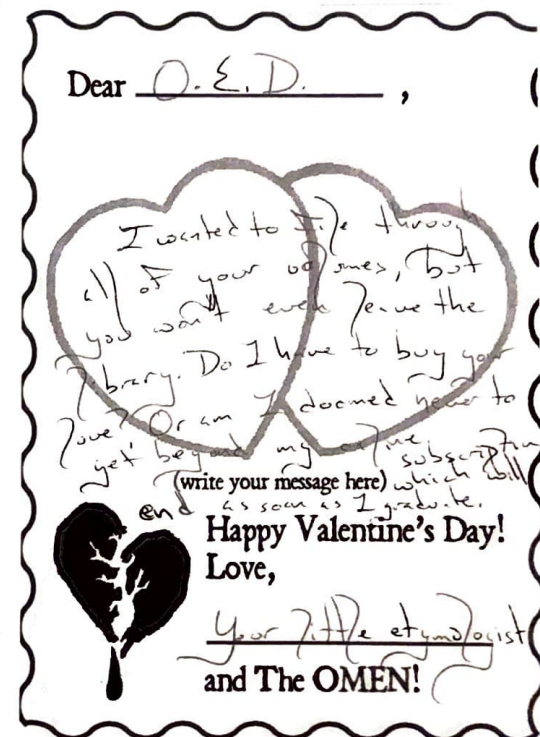 Dear O.E.D.,
I wanted to file through
all of your volumes, but
you won't even leave the
library. Do I have to buy your
love? Or am I doomed never to
get beyond my online subscription
(write your message here) which will
end as soon as I graduate.
Happy Valentine's Day!
Love,
Your little etymologist
and The OMEN!